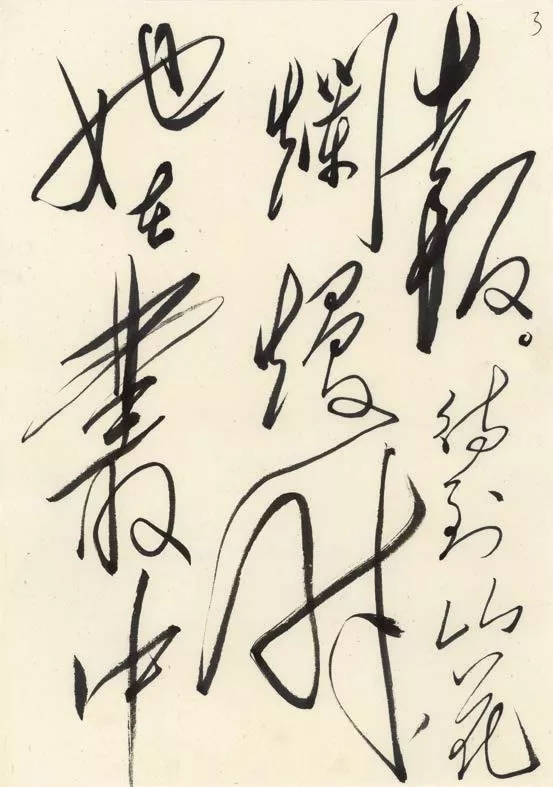 3
報。待到山花
爛熳時
她在叢中